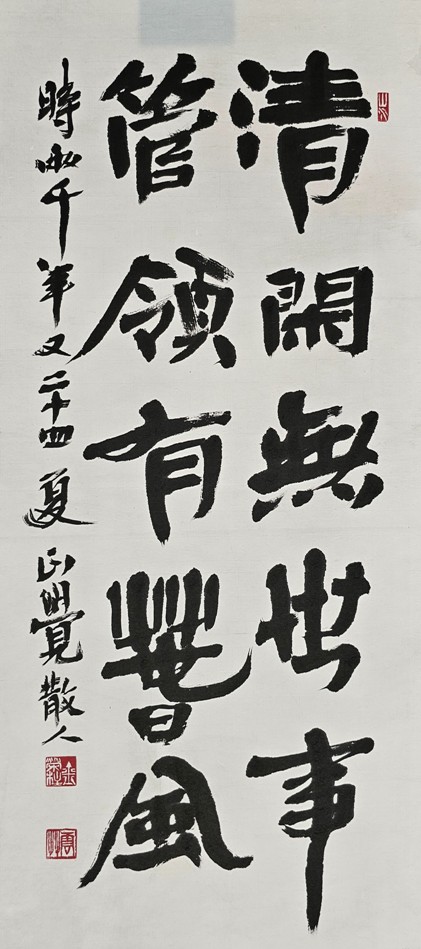 清閑無世事
管領有春風
時二千年又二十四夏 正覺散人